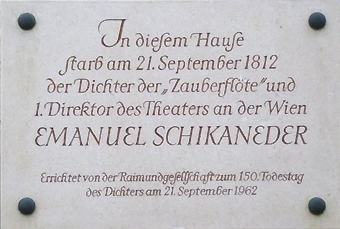 In diesem Hause
starb am 21. September 1812
der Dichter der „Zauberflöte“ und
1. Direktor des Theaters an der Wien
EMANUEL SCHIKANEDER
Errichtet von der Raimundgesellschaft zum 150. Todestag
des Dichters am 21. September 1962